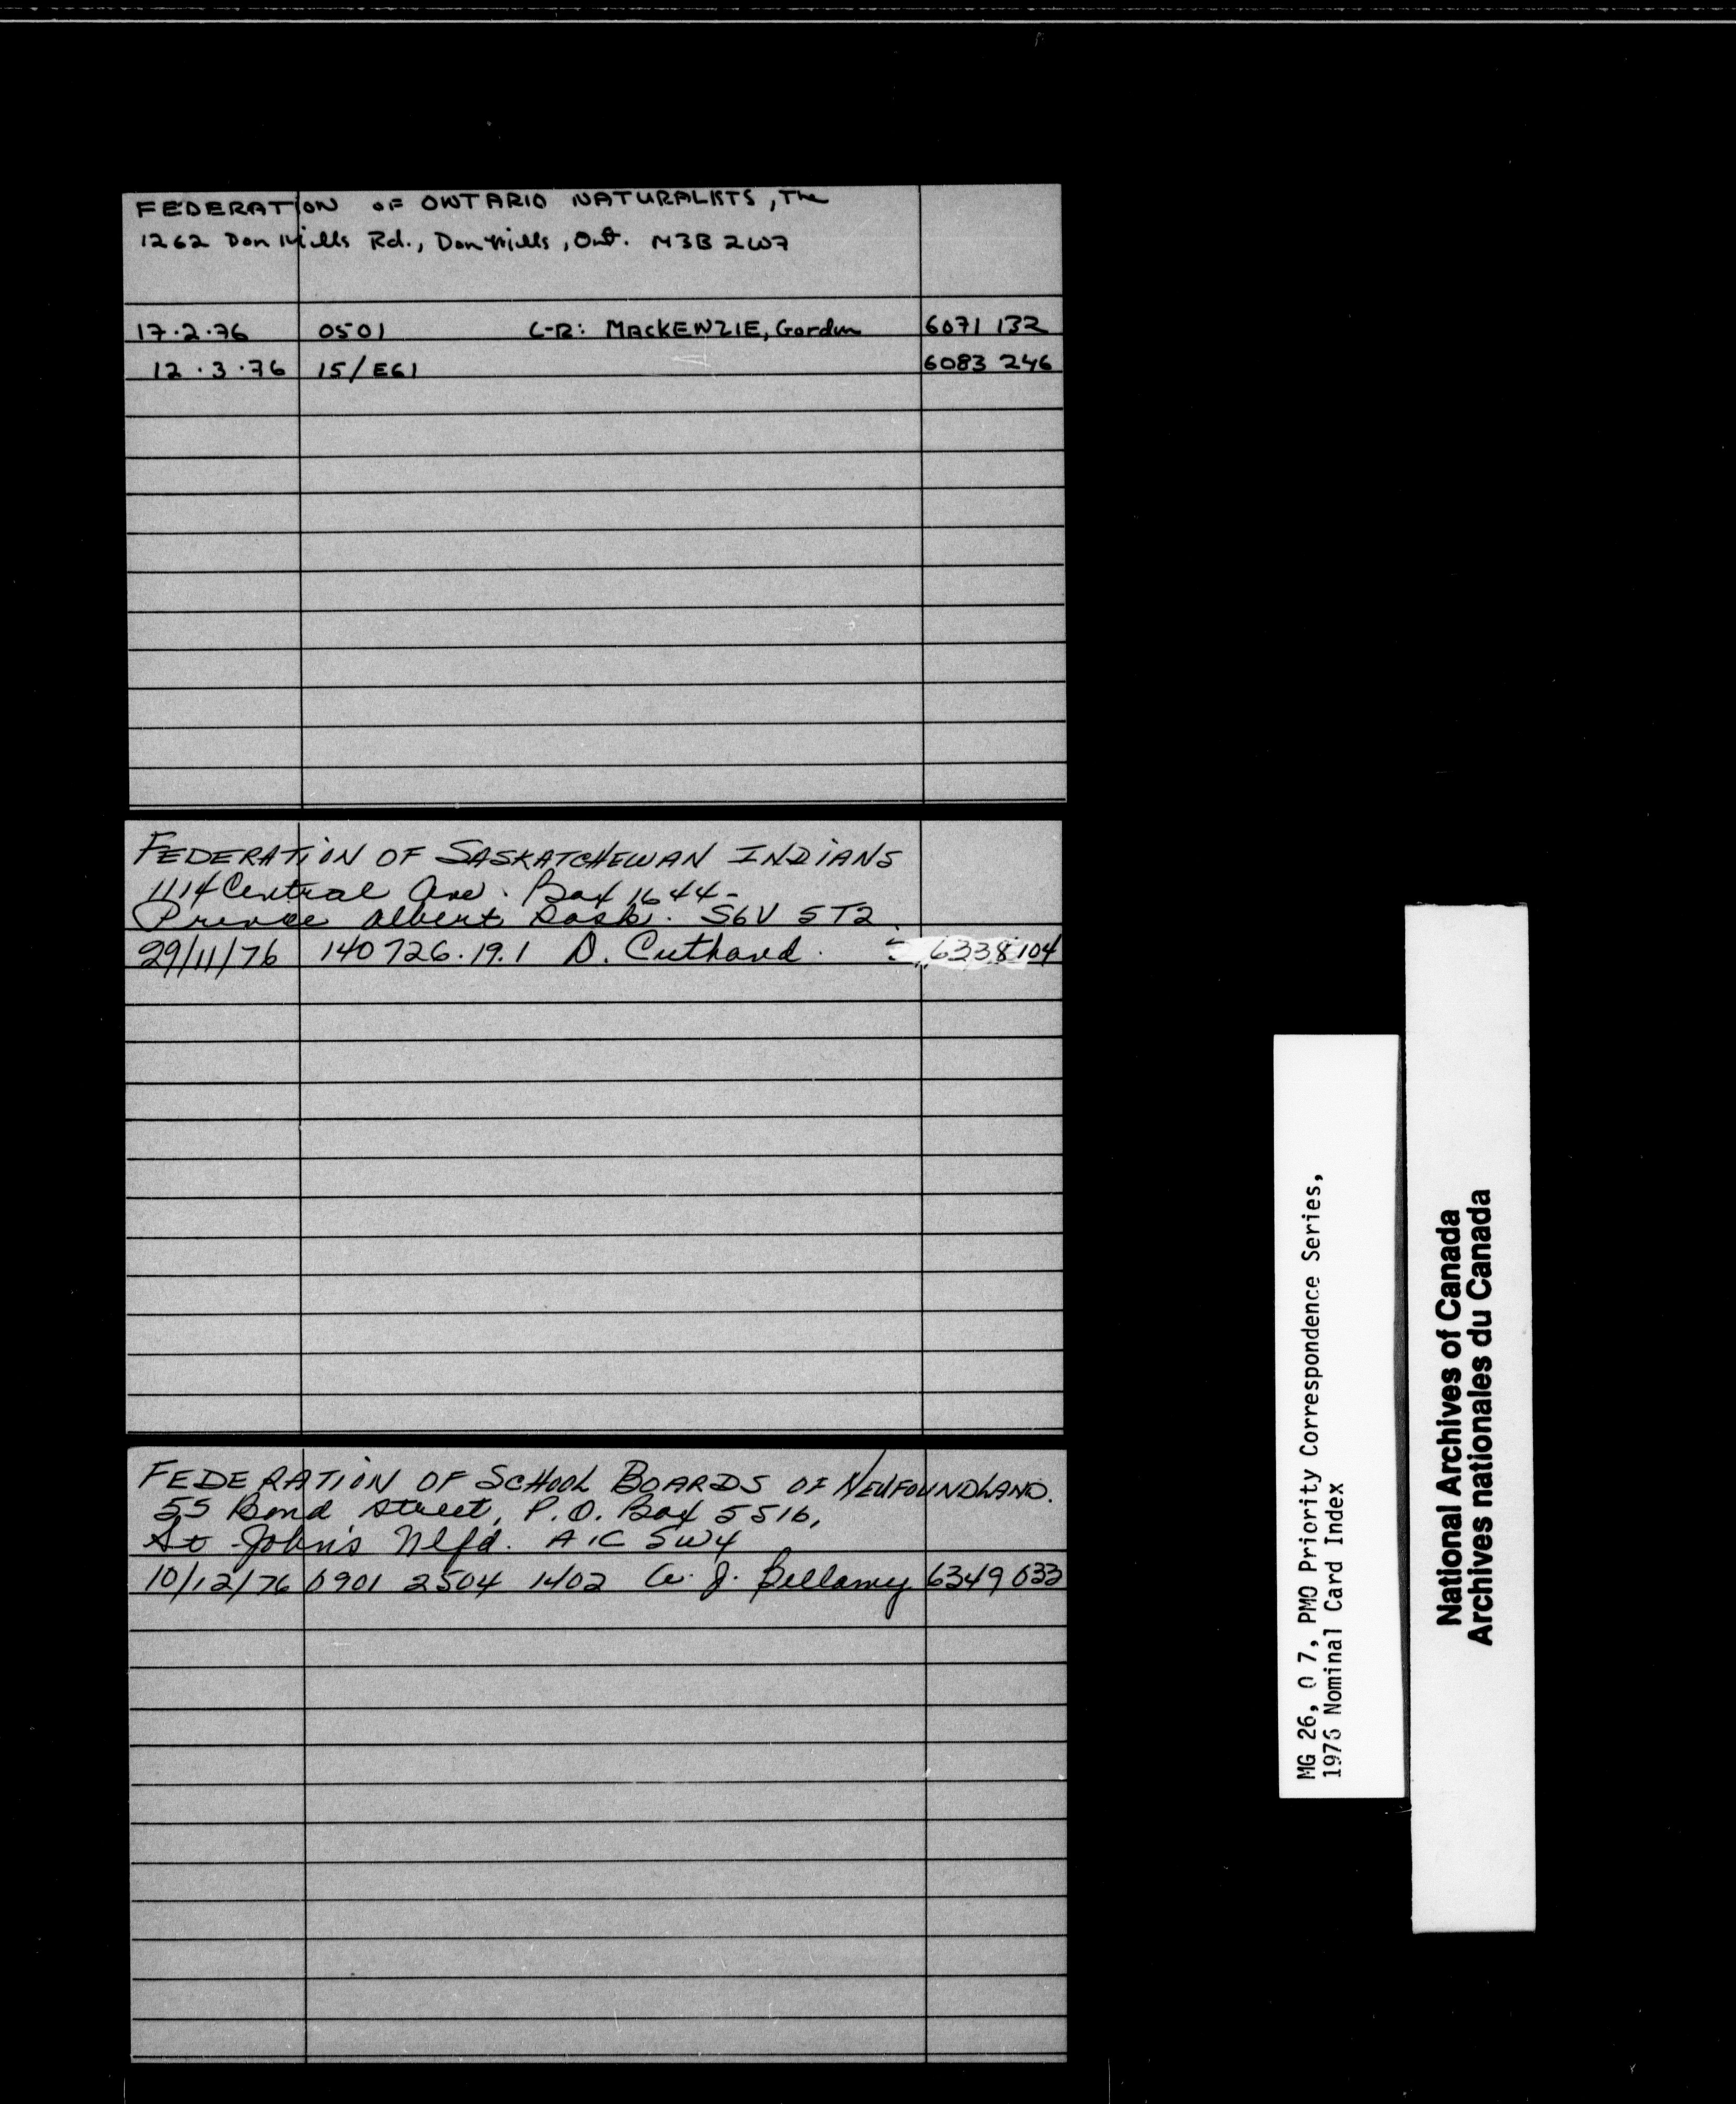 FEDERATION OF ONTARIO NATURALISTS, The
1262 Don Mills Rd., Don Mills, Ont. M3B 2W7
17.2.76 0501 C-R: MACKENZIE, Gordon 6071 132
12.3.76 15/E61 6083 246
FEDERATION OF SASKATCHEWAN INDIANS
1114 Central Ave. Box 1644-
Prince Albert Sask. S6V 5T2
29/11/76 140726.19.1 D. Cuthand. 6338104
FEDERATION OF SCHOOL BOARDS OF NEWFOUNDLAND.
55 Bond Street, P.O. Box 5516,
St John's Nlfd. A1C 5W4
10/12/76 0901 2504 1402 G. J. Bellamy 6349 033
MG 26, O 7, PMO Priority Correspondence Series,
1976 Nominal Card Index
National Archives of Canada
Archives nationales du Canada